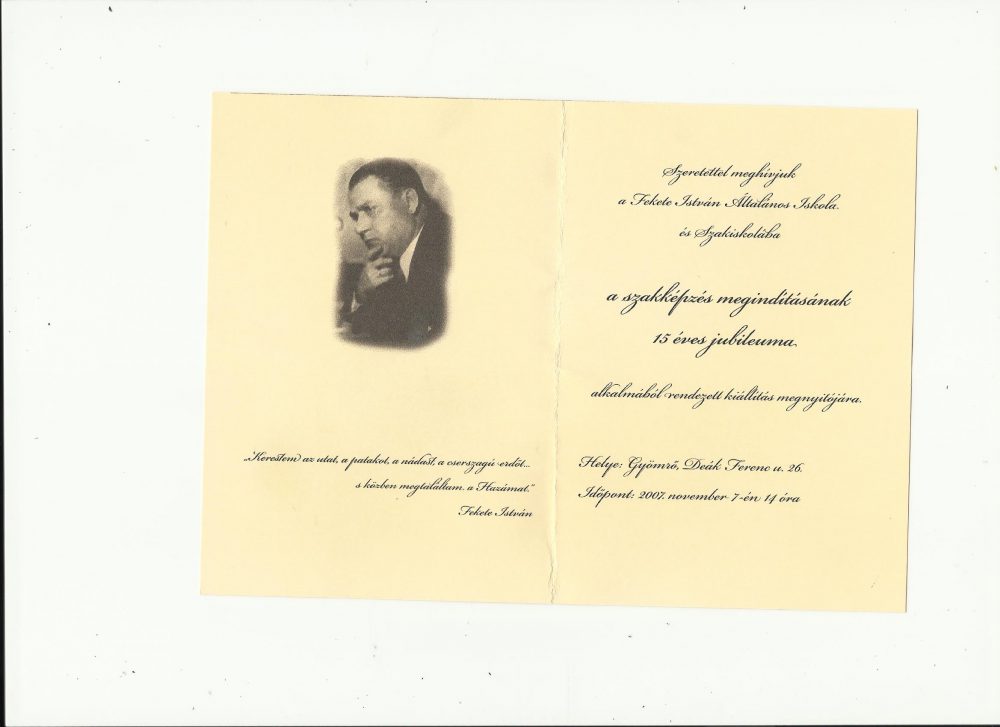 „Kerestem az utat, a patakot, a nádast, a cserszagú erdőt...
s közben megtaláltam a Hazámat."
Fekete István
Szeretettel meghívjuk
a Fekete István Általános Iskola
és Szakiskolába
a szakképzés megindításának
15 éves jubileuma
alkalmából rendezett kiállítás megnyitójára.
Helye: Gyömrő, Deák Ferenc u. 26.
Időpont: 2007. november 7-én 14 óra